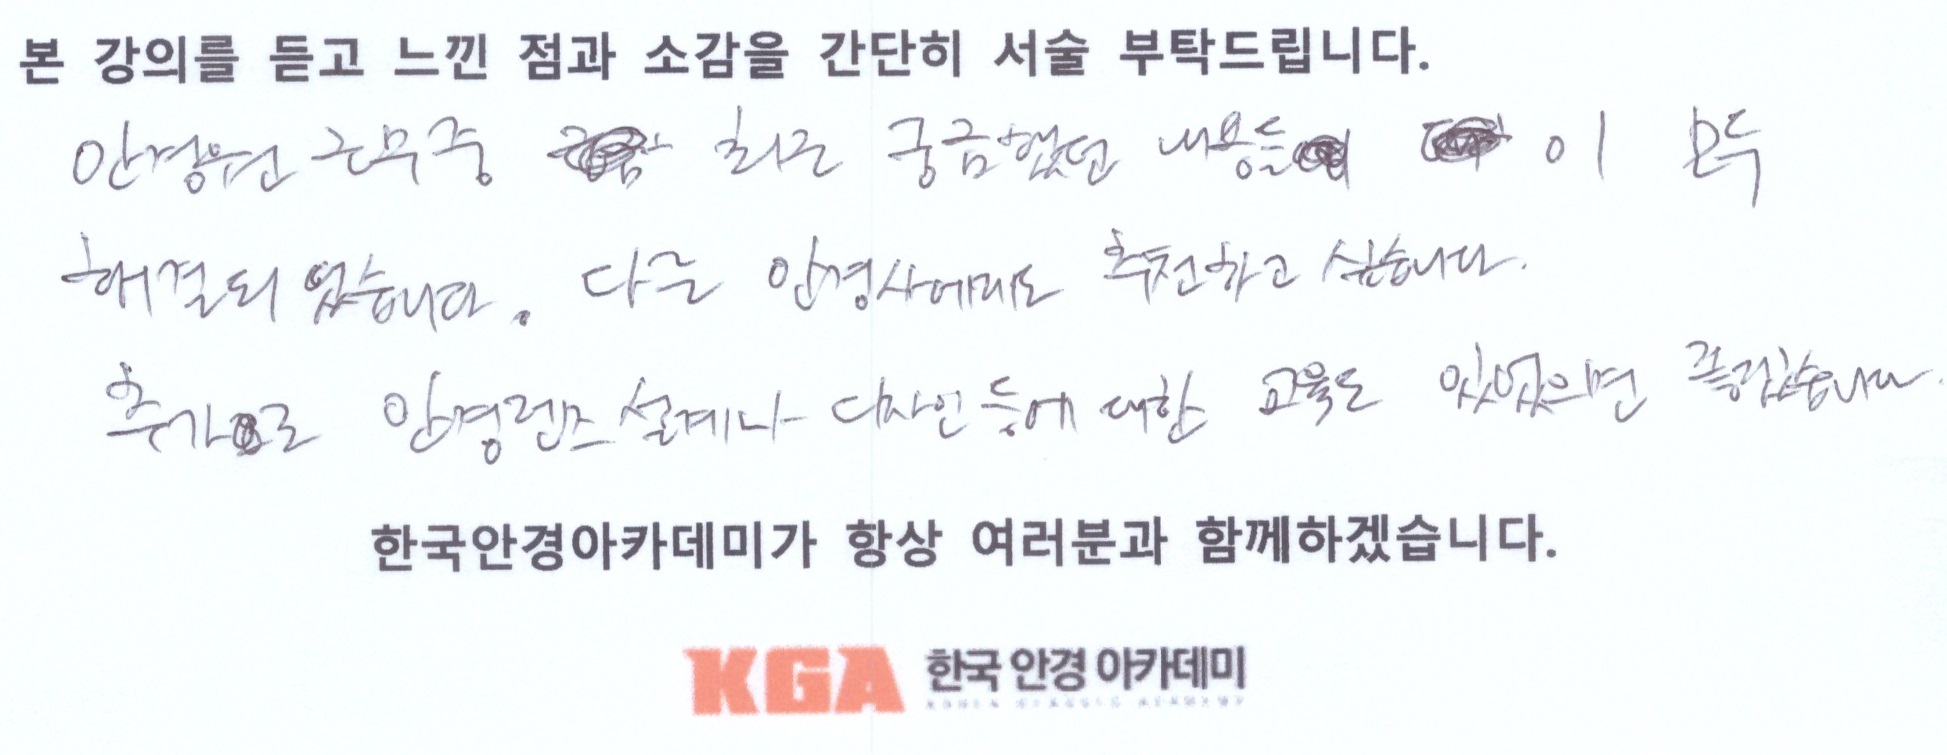 본 강의를 듣고 느낀 점과 소감을 간단히 서술 부탁드립니다.
안경원 근무중 최근 궁금했던 내용들 이 모두
해결되었습니다. 다른 안경사에게도 추천하고 싶습니다.
추가로 안경렌즈 설계나 디자인 등에 대한 교육도 있었으면 좋겠습니다.
한국안경아카데미가 항상 여러분과 함께하겠습니다.
KGA 한국 안경 아카데미